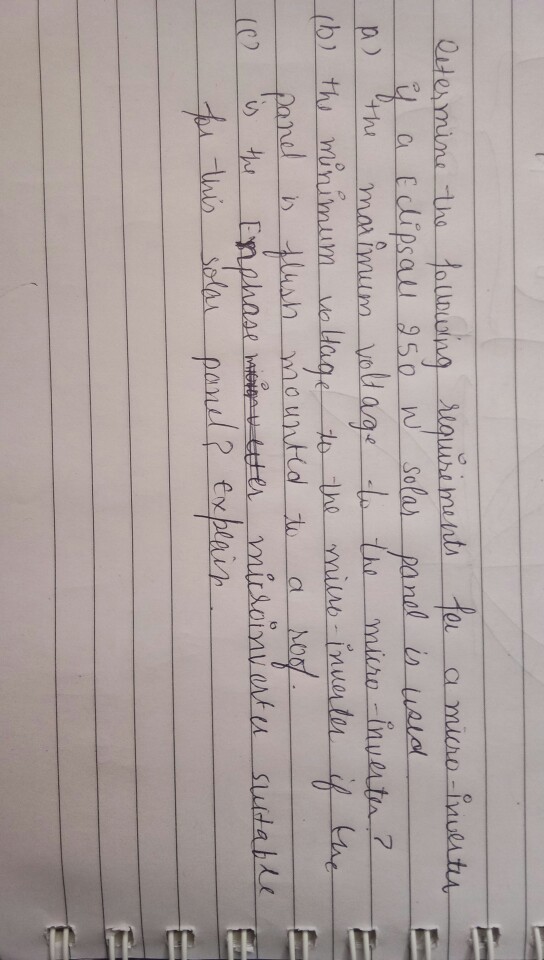 Determine the following requirements for a micro-inverter
if a Eclipsall 250 W solar panel is used
a) the maximum voltage to the micro-inverter?
(b) the minimum voltage to the micro-inverter if the
panel is flush mounted to a roof.
(c) is the Enphase microinverter suitable
for this solar panel? explain.